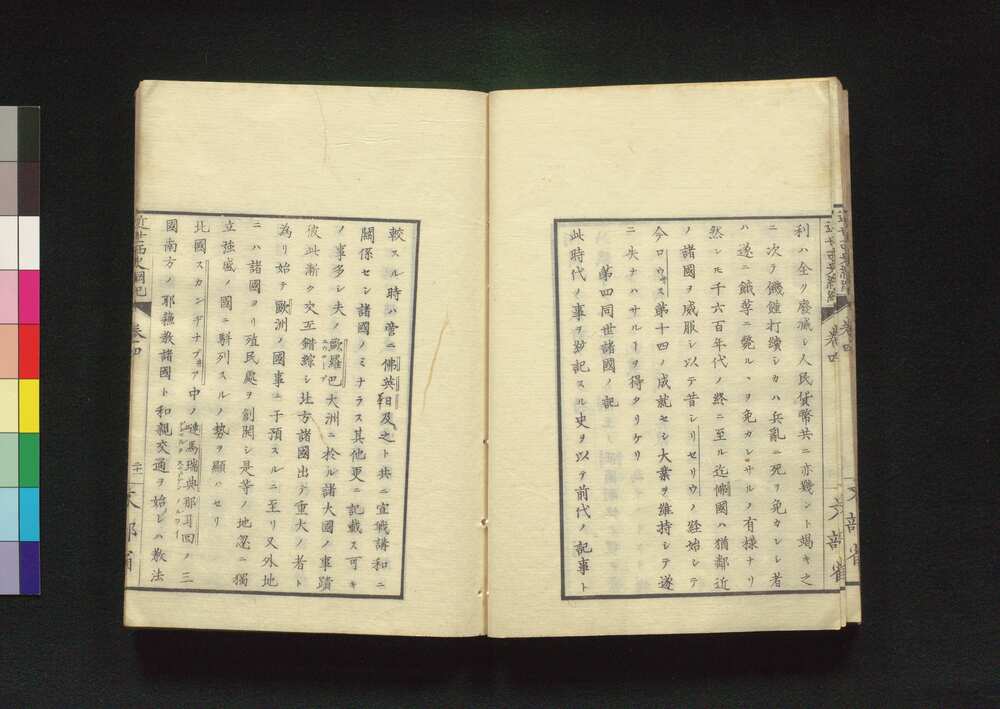 利ハ全ク廢滅シ人民貨幣共ニ亦幾ント竭キ之
ニ次ク饑饉打續シカハ兵亂ニ死ヲ免カレシ者
ハ遂ニ餓莩ニ斃ルヽヲ免カレサルノ有様ナリ
然レ𪜈千六百年代ノ終ニ至ル迄佛國ハ猶鄰近
ノ諸國ヲ威服シ以テ昔シリセリウノ經始シテ
今ロウヰス第十四ノ成就セシ大業ヲ維持シテ遂
ニ失ナハサルヿヲ得タリケリ
第四同世諸國ノ記
此時代ノ事ヲ抄記スル史ヲ以テ前代ノ記事ト
較スル時ハ啻ニ佛英日及之ト共ニ宣戰講和ニ
關係セシ諸國ノミナラス其他更ニ記載ス可キ
ノ事多シ夫ノ歐羅巴大洲ニ於ル諸大國ノ事蹟
彼此漸ク交互錯綜シ北方諸國出テ重大ノ者ト
為リ始テ歐洲ノ國事ニ干預スルニ至リ又外地
ニハ諸國ヨリ殖民處ヲ創開シ是等ノ地忽ニ獨
立強盛ノ國ニ駢列スルノ勢ヲ顯ハセリ
北國スカンヂナブ井ア中ノ嗹馬瑞典那耳回ノ三
國南方ノ耶穌教諸國ト和親交通ヲ始シハ教法
近世西史綱紀
卷四
文部省